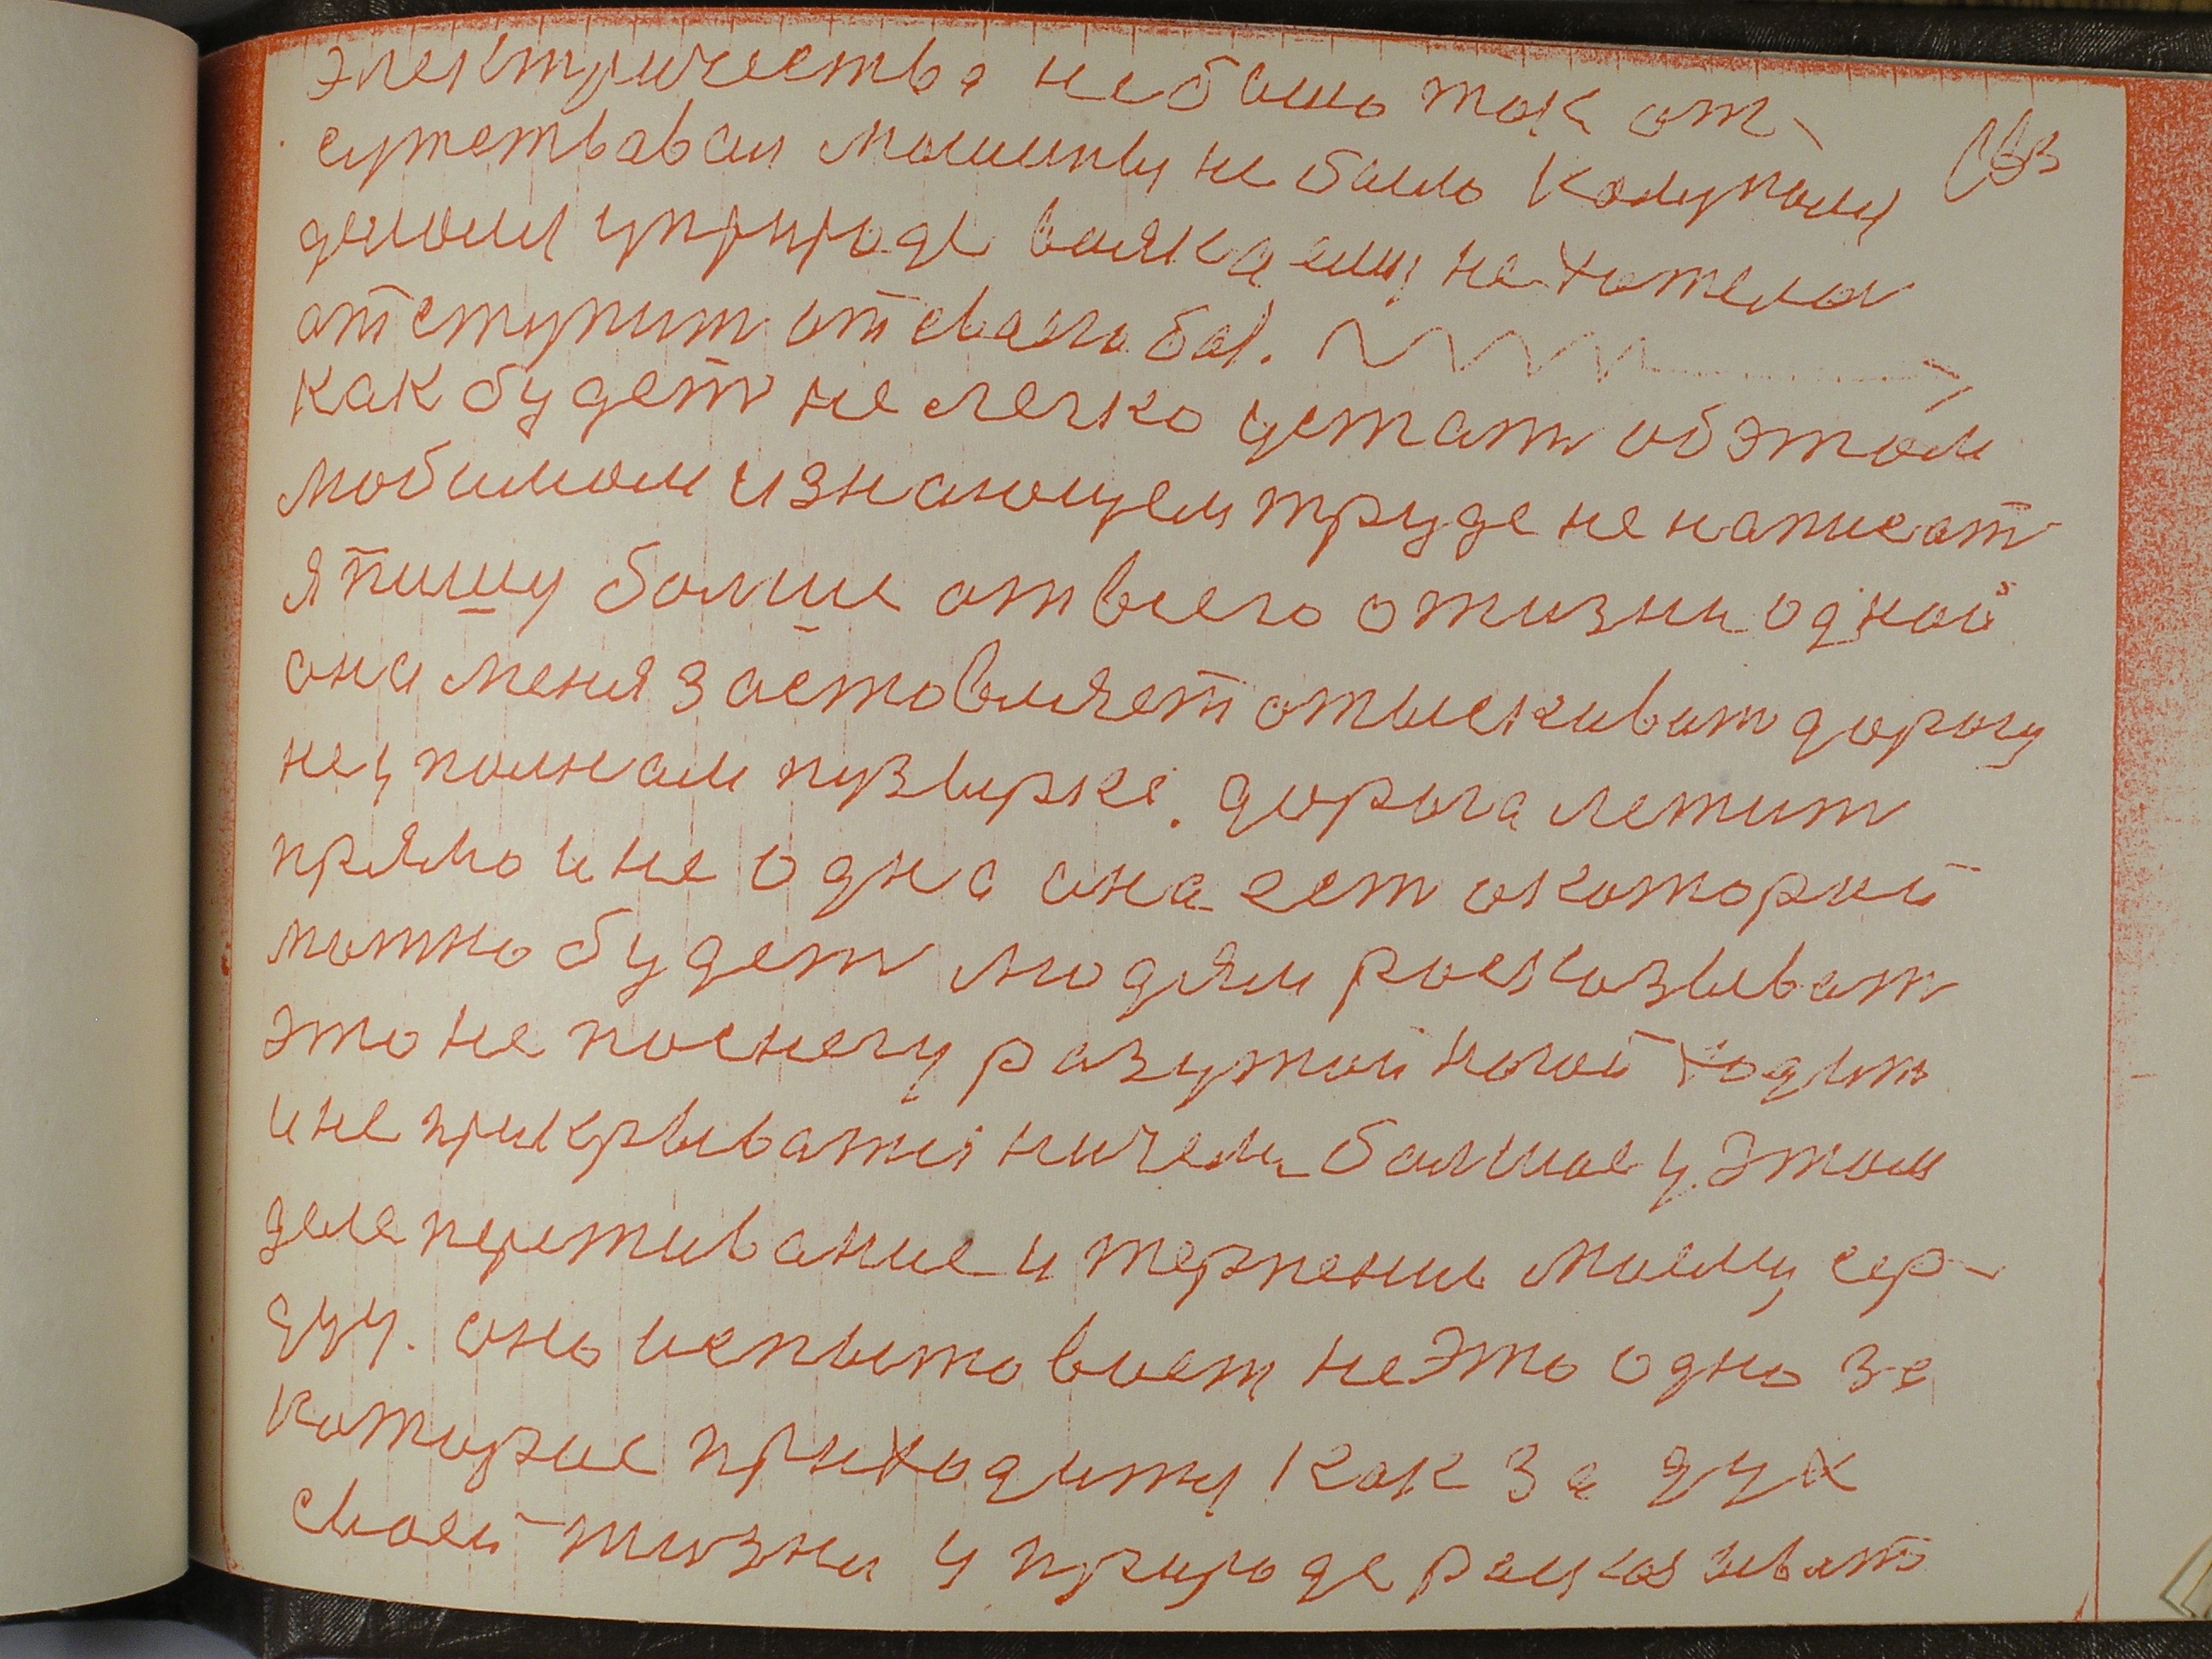 электричества не было ток от-
сутствавал машины не было
делом у природе всякаему не хотелся
отступит от сваего
Как будет не легко устат об этом
любимом и знающем труде не написат
я пишу болше от всего о жизни одной
она меня заставляет отыскиват дорогу
не у полнам пузырке. дорога лежит
прямо и не одна она ест о которий
можно будет людям росказыват
это не по снегу разутой ногой ходит
и не прикрыватся ничем болшое у этом
деле переживание и терпение моему сер-
дцу. оно испытовает не это одно за
которые приходится как за дух
своей жизни у природе росказыват